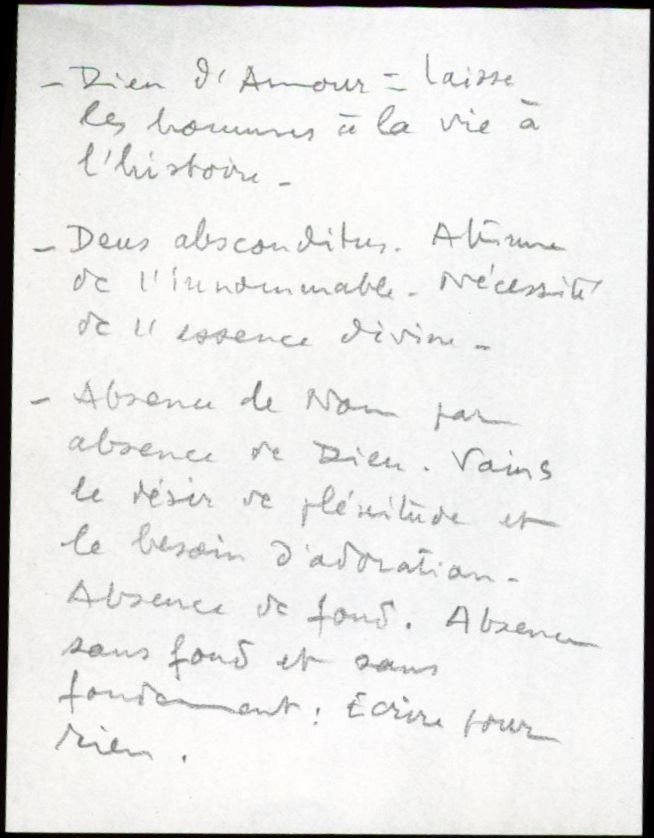 - Dieu d'Amour = laisse
les hommes à la vie à
l'histoire -
- Deus absconditus. Abîme
de l'innommable - Nécessité
de l'essence divine -
- Absence de Nom par
absence de Dieu. Vains
le désir de plénitude et
le besoin d'adoration -
Absence de fond. Absence
sans fond et sans
fondement : Écrire pour
rien.